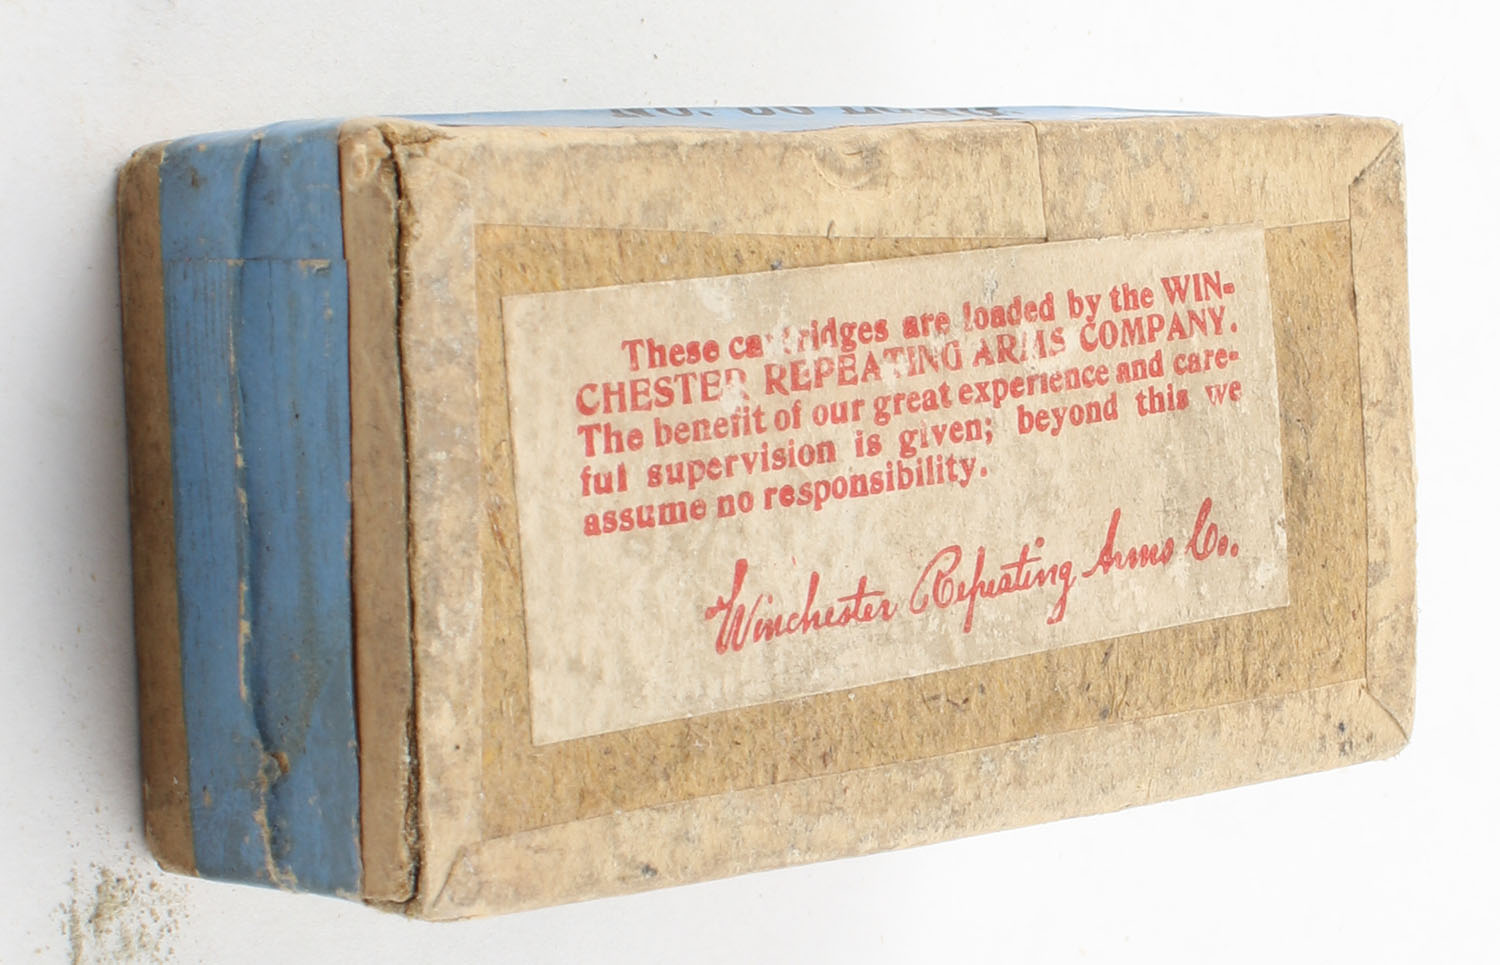 NO.
These cartridges are loaded by the WIN-
CHESTER REPEATING ARMS COMPANY.
The benefit of our great experience and care-
ful supervision is given; beyond this we
assume no responsibility.
Winchester Repeating Arms Co.